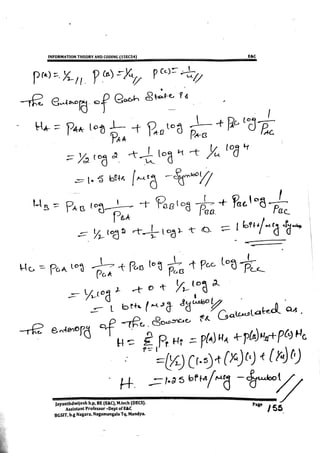 INFORMATION THEORY AND CODING (15EC54) E&C
P(A) = 1/2 //, P(B) = 1/4 //, P(C) = 1/4 //
The Entropy of Each State is
HA = PAA log 1/PAA + PAB log 1/PAB + PAC log 1/PAC
= 1/2 log 2 + 1/4 log 4 + 1/4 log 4
= 1.5 bits/msg-symbol //
HB = PAB log 1/PBA + PBB log 1/PBB + PBC log 1/PBC
= 1/2 log 2 + 1/2 log 2 + 0 = 1 bits/msg symbo
HC = PCA log 1/PCA + PCB log 1/PCB + PCC log 1/PCC
= 1/2 log 2 + 0 + 1/2 log 2
= 1 bits/msg symbol //
The entropy of The Source is Calculated as.
H = Σ Pi Hi = P(A) HA + P(B) HB + P(C) HC
i=1
= (1/2)(1.5) + (1/4)(1) + (1/4)(1)
H. = 1.25 bits/msg - symbol //
Jayanthdwijesh h.p, BE (E&C), M.tech (DECS). Page 155
Assistant Professor –Dept of E&C
BGSIT, b.g Nagara, Nagamangala Tq, Mandya.